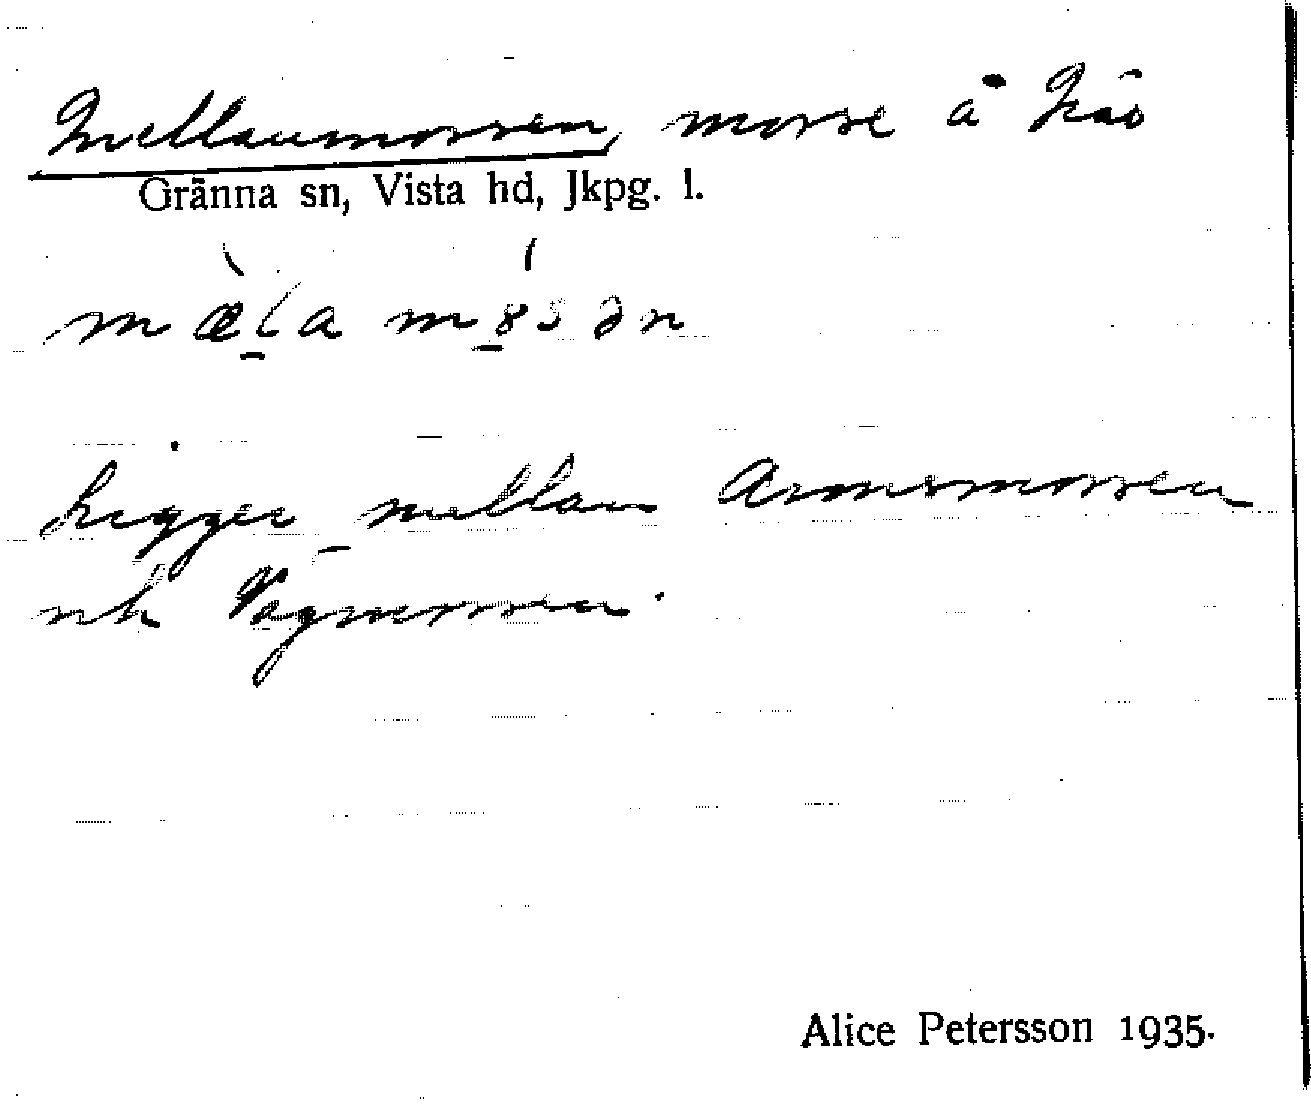 Mellanmossen, mosse å
Gränna sn, Vista hd, Jkpg. l.
Ligger mellan Aronsmossen
och Vagnmossen.
Alice Petersson 1935.